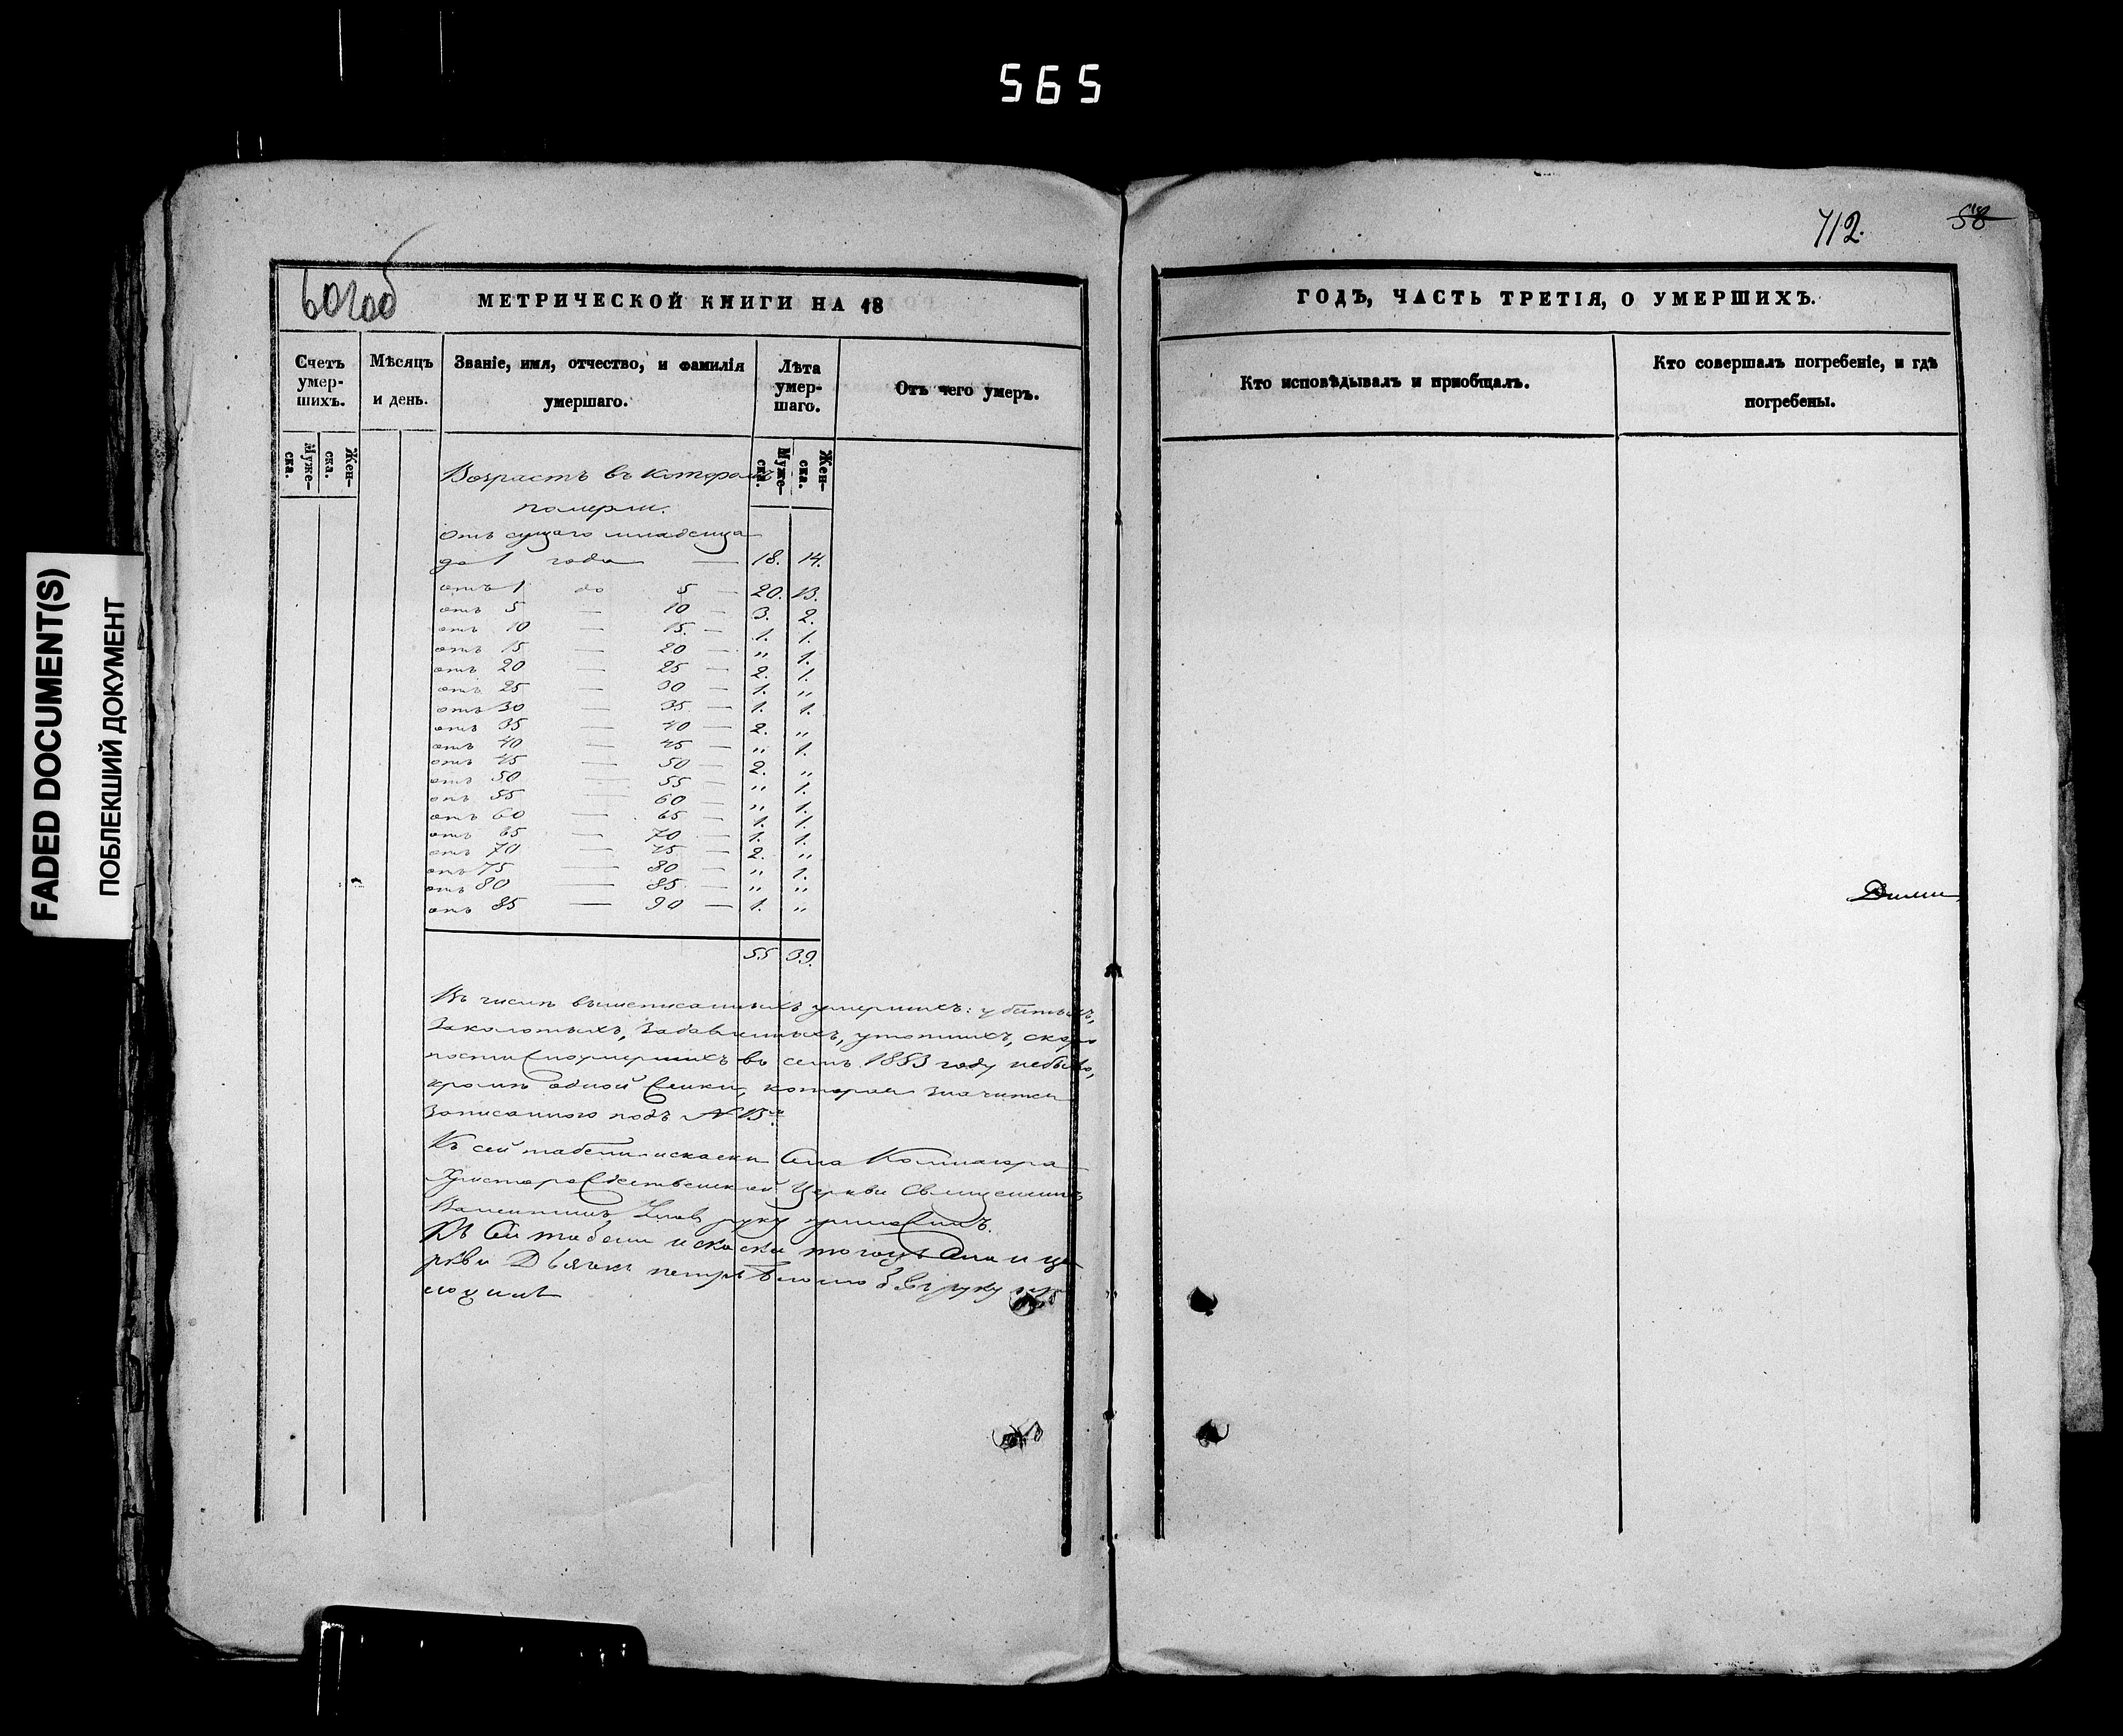 565
FADED DOCUMENT(S)
ПОБЛЕКШИЙ ДОКУМЕНТ
712.
58
МЕТРИЧЕСКОЙ КНИГИ НА 18
ГОДЪ, ЧАСТЬ ТРЕТІЯ, О УМЕРШИХЪ.
Счетъ умер-шихъ.
Муже-ска.
Жен-ска.
Мѣсяцъ и день.
Званіе, имя, отчество, и фамилія умершаго.
Лѣта умер-шаго.
Муже-ска.
Жен-ска.
Отъ чего умеръ.
Кто исповѣдывалъ и приобщалъ.
Кто совершалъ погребеніе, и гдѣ погребены.
Возрастъ въ которомъ
померли.
отъ сущаго младенца
до 1 года — 18. 14.
отъ 1 до 5 — 20. 13.
отъ 5 — 10 — 3. 2.
отъ 10 — 15. — 1. 1.
отъ 15 — 20 — " 1.
отъ 20 — 25 — 2. 1.
отъ 25 — 30 — 1. "
отъ 30 — 35 — 1. 1.
отъ 35 — 40 — 2. "
отъ 40 — 45 — " 1.
отъ 45 — 50 — 2. "
отъ 50 — 55 — " 1.
отъ 55 — 60 — " 1.
отъ 60 — 65 — 1. 1.
отъ 65 — 70 — 1. 1.
отъ 70 — 75 — 2. "
отъ 75 — 80 — " 1.
отъ 80 — 85 — " "
отъ 85 — 90 — 1. "
55 39.
Въ числѣ вышеписанныхъ умершихъ: убитыхъ,
заколотыхъ, задавленныхъ, утопшихъ, скоро
постижно умершихъ въ семъ 1853 году небыло,
кромѣ одной, которая значится
записанного подъ № 13
Къ сей табели и скаски села
Христорождественской Церкви Священникъ
Валентинъ руку приложилъ.
Къ сей табели и скаски тогожъ села и це
ркви Дьячекъ петръ руку при
ложилъ